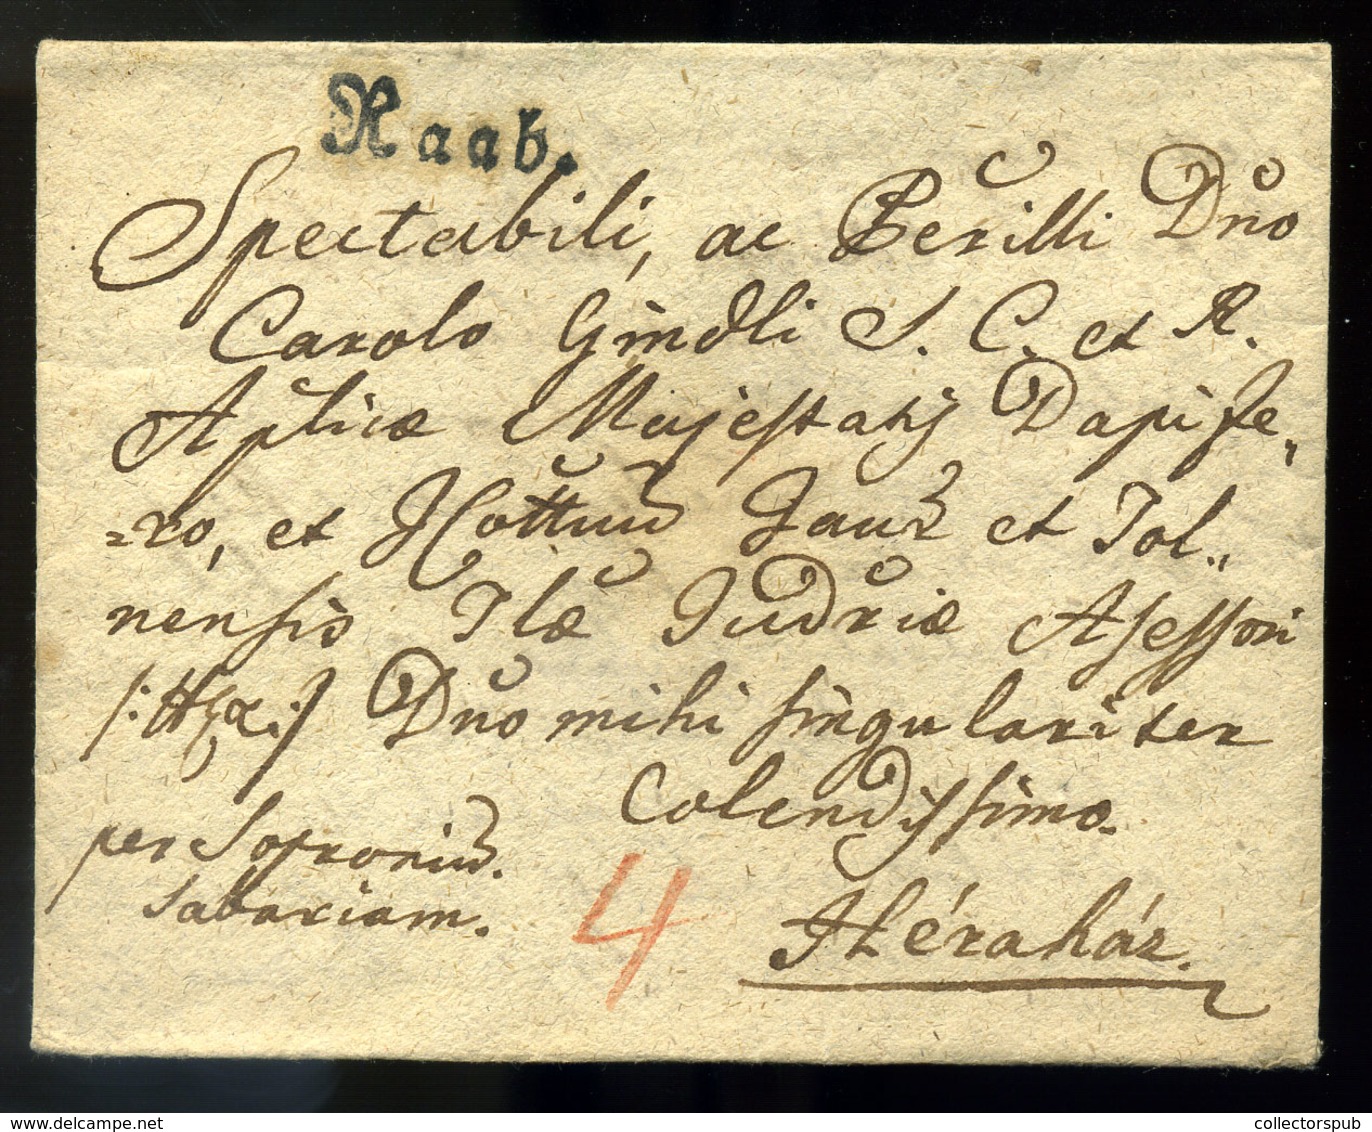 Raab.
Spectabili, ac Perilli Dno
Carolo Gindli S. C. et R.
Aplicæ Majestatis Dapife„
=ro, et Cottuum Jaur et Tol„
nensis Tlæ Judriæ Asessori
/: :/ Dno mihi singulariter
Colendissimo.
per Sopronium.
Sabariam.
4
Héraház.
www.delcampe.net
collectorspub